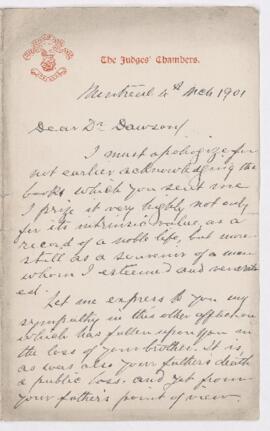 The Judges' Chambers.
Montreal 4th Mch 1901
Dear Dr Dawson
I must apologize for
not earlier acknowledging the
book which you sent me
I prize it very highly not only
for its intrinsic value, as a
record of a noble life, but more
still as a souvenir of a man
whom I esteemed and venerat
ed.
Let me express to you my
sympathy in this other affliction
which has fallen upon you in
the loss of your brother. It is,
as was also your father's death
a public loss. and yet from
your father's point of view